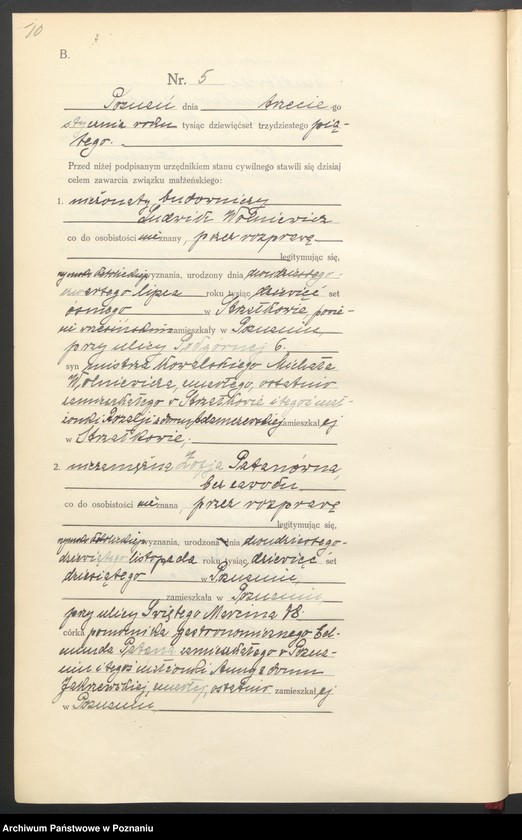 10
B.
Nr. 5
Poznań dnia trzecie go
stycznia roku tysiąc dziewięćset trzydziestego pią-
tego.
Przed niżej podpisanym urzędnikiem stanu cywilnego stawili się dzisiaj
celem zawarcia związku małżeńskiego:
1. nieżonaty budowniczy
Ludwik Wolniewicz
co do osobistości nieznany, przez rozprawę
legitymując się,
rzymsko katolickiego wyznania, urodzony dnia dwudziestego
czwartego lipca roku tysiąc dziewięć set
ósmego w Strzałkowie, powie-
cie wrzesińskim zamieszkały w Poznaniu,
przy ulicy Podgórnej 6.
syn mistrza kowalskiego Michała
Wolniewicza, zmarłego, ostatnio
zamieszkałego w Strzałkowie i tegoż mał-
żonki Rozalji z domu zamieszkał ej
w Strzałkowie,
2. niezamężna Zofja Patanówna,
bez zawodu
co do osobistości nieznana, przez rozprawę
legitymując się,
rzymsko katolickiego wyznania, urodzona dnia dwudziestego-
dziewiątego listopada roku tysiąc dziewięć set
dziesiątego w Poznaniu,
zamieszkała w Poznaniu
przy ulicy Świętego Marcina 78.
córka pomocnika gastronomicznego Ed-
munda Patana zamieszkałego w Pozna-
niu i tegoż małżonki Anny z domu
Zakrzewskiej, zmarłej, ostatnio zamieszkał ej
w Poznaniu
Archiwum Państwowe w Poznaniu